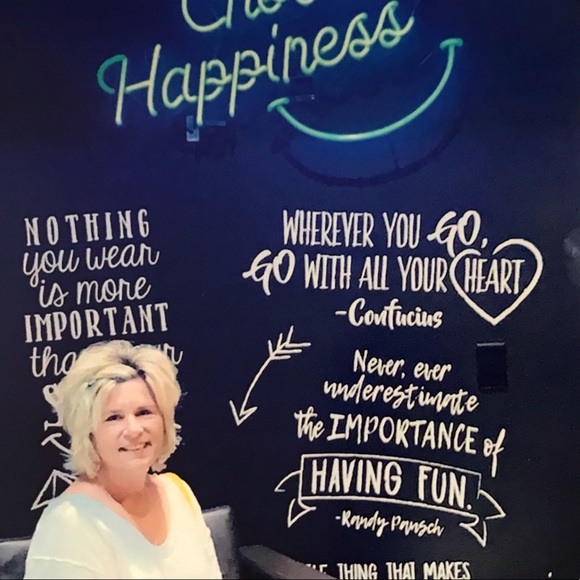 Happiness
NOTHING
you wear
is more
IMPORTANT
WHEREVER YOU GO,
GO WITH ALL YOUR HEART
-Confucius
Never, ever
underestimate
the IMPORTANCE of
HAVING FUN.
-Randy Pausch
THING THAT MAKES